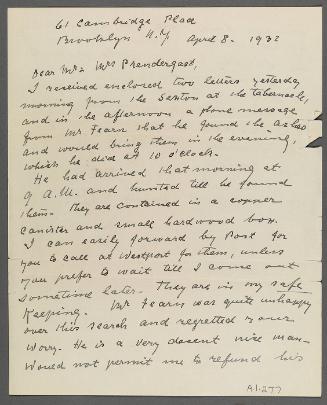 61 Cambridge Place
Brooklyn N.Y. April 8 - 1932
Dear Mr & Mrs Prendergast,
I received enclosed two letters yesterday
morning from the Sexton at the Tabernacle,
and in the afternoon a phone message
from Mr Fearn that he found the ashes
and would bring them in the evening,
which he did at 10 o'clock.
He had arrived that morning at
9 A.M. and hunted till he found
them. They are contained in a copper
canister and small hardwood box.
I can easily forward by Post for
you to call at Westport for them, unless
you prefer to wait till I come out
sometime later. They are in my safe
keeping. Mr Fearn was quite unhappy
over this search and regretted your
worry. He is a very decent nice man -
would not permit me to refund his
A1.277